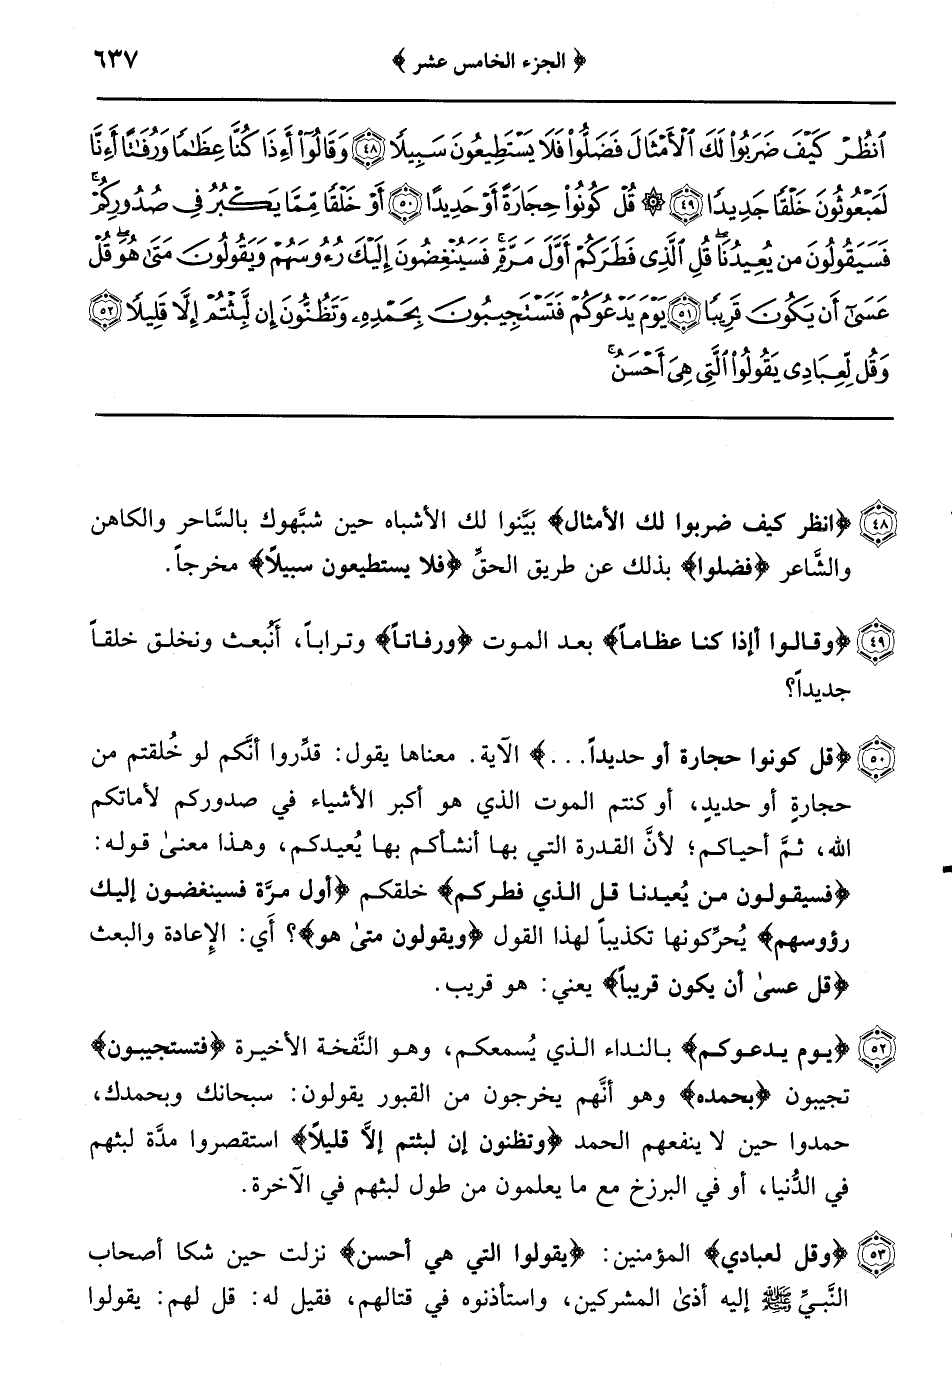 ﴿ الجزء الخامس عشر ﴾ ٦٣٧
ٱنظُرْ كَيْفَ ضَرَبُوا۟ لَكَ ٱلْأَمْثَالَ فَضَلُّوا۟ فَلَا يَسْتَطِيعُونَ سَبِيلًا ﴿٤٨﴾ وَقَالُوٓا۟ أَءِذَا كُنَّا عِظَٰمًا وَرُفَٰتًا أَءِنَّا
لَمَبْعُوثُونَ خَلْقًا جَدِيدًا ﴿٤٩﴾ ۞ قُلْ كُونُوا۟ حِجَارَةً أَوْ حَدِيدًا ﴿٥٠﴾ أَوْ خَلْقًا مِّمَّا يَكْبُرُ فِى صُدُورِكُمْ ۚ
فَسَيَقُولُونَ مَن يُعِيدُنَا ۖ قُلِ ٱلَّذِى فَطَرَكُمْ أَوَّلَ مَرَّةٍ ۚ فَسَيُنْغِضُونَ إِلَيْكَ رُءُوسَهُمْ وَيَقُولُونَ مَتَىٰ هُوَ ۖ قُلْ
عَسَىٰٓ أَن يَكُونَ قَرِيبًا ﴿٥١﴾ يَوْمَ يَدْعُوكُمْ فَتَسْتَجِيبُونَ بِحَمْدِهِۦ وَتَظُنُّونَ إِن لَّبِثْتُمْ إِلَّا قَلِيلًا ﴿٥٢﴾
وَقُل لِّعِبَادِى يَقُولُوا۟ ٱلَّتِى هِىَ أَحْسَنُ ۚ
﴿٤٨﴾ ﴿انظر كيف ضربوا لك الأمثال﴾ بيَّنوا لك الأشباه حين شبَّهوك بالسَّاحر والكاهن
والشَّاعر ﴿فضلوا﴾ بذلك عن طريق الحقِّ ﴿فلا يستطيعون سبيلاً﴾ مخرجاً.
﴿٤٩﴾ ﴿وقالوا أإذا كنا عظاماً﴾ بعد الموت ﴿ورفاتاً﴾ وتراباً، أَنُبعث ونخلق خلقاً
جديداً؟
﴿٥٠﴾ ﴿قل كونوا حجارة أو حديداً. . .﴾ الآية. معناها يقول: قدِّروا أنَّكم لو خُلقتم من
حجارةٍ أو حديدٍ، أو كنتم الموت الذي هو أكبر الأشياء في صدوركم لأماتكم
الله، ثمَّ أحياكم؛ لأنَّ القدرة التي بها أنشأكم بها يُعيدكم، وهذا معنىٰ قوله:
﴿فسيقولون من يُعيدنا قل الذي فطركم﴾ خلقكم ﴿أول مرَّة فسينغضون إليك
رؤوسهم﴾ يُحرِّكونها تكذيباً لهذا القول ﴿ويقولون متىٰ هو﴾؟ أَي: الإِعادة والبعث
﴿قل عسىٰ أن يكون قريباً﴾ يعني: هو قريب.
﴿٥٢﴾ ﴿يوم يدعوكم﴾ بالنداء الذي يُسمعكم، وهو النَّفخة الأخيرة ﴿فتستجيبون﴾
تجيبون ﴿بحمده﴾ وهو أنَّهم يخرجون من القبور يقولون: سبحانك وبحمدك،
حمدوا حين لا ينفعهم الحمد ﴿وتظنون إن لبثتم إلاَّ قليلاً﴾ استقصروا مدَّة لبثهم
في الدُّنيا، أو في البرزخ مع ما يعلمون من طول لبثهم في الآخرة.
﴿٥٣﴾ ﴿وقل لعبادي﴾ المؤمنين: ﴿يقولوا التي هي أحسن﴾ نزلت حين شكا أصحاب
النَّبيِّ ﷺ إليه أذىٰ المشركين، واستأذنوه في قتالهم، فقيل له: قل لهم: يقولوا